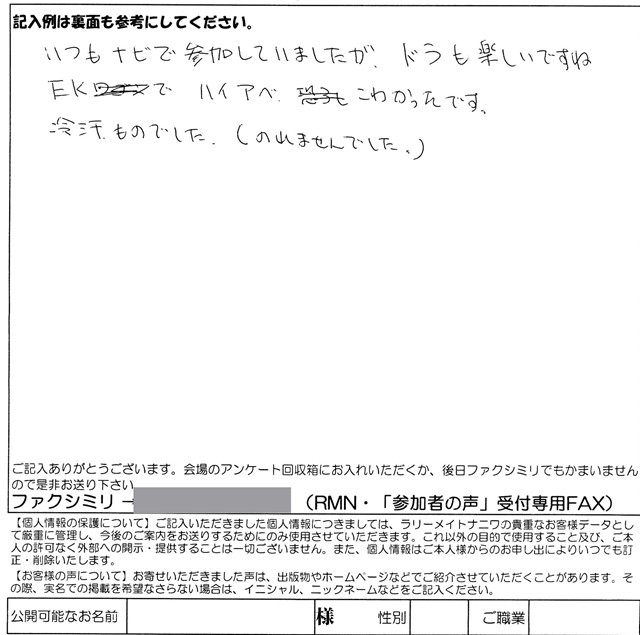 記入例は裏面も参考にしてください。
いつもナビで参加していましたが、ドラも楽しいですね
EKで ハイアベ、こわかったです。
冷汗ものでした。(のれませんでした。)
ご記入ありがとうございます。会場のアンケート回収箱にお入れいただくか、後日ファクシミリでもかまいません
ので是非お送り下さい
ファクシミリ→ (RMN・「参加者の声」受付専用FAX)
【個人情報の保護について】ご記入いただきました個人情報につきましては、ラリーメイトナニワの貴重なお客様データとし
て厳重に管理し、今後のご案内をお送りするためにのみ使用させていただきます。これ以外の目的で使用すること及び、ご本
人の許可なく外部への開示・提供することは一切ございません。また、個人情報はご本人様からのお申し出によりいつでも訂
正・削除いたします。
【お客様の声について】お寄せいただきました声は、出版物やホームページなどでご紹介させていただくことがあります。そ
の際、実名での掲載を希望なさらない場合は、イニシャル、ニックネームなどをご記入ください。
公開可能なお名前 様 性別 ご職業